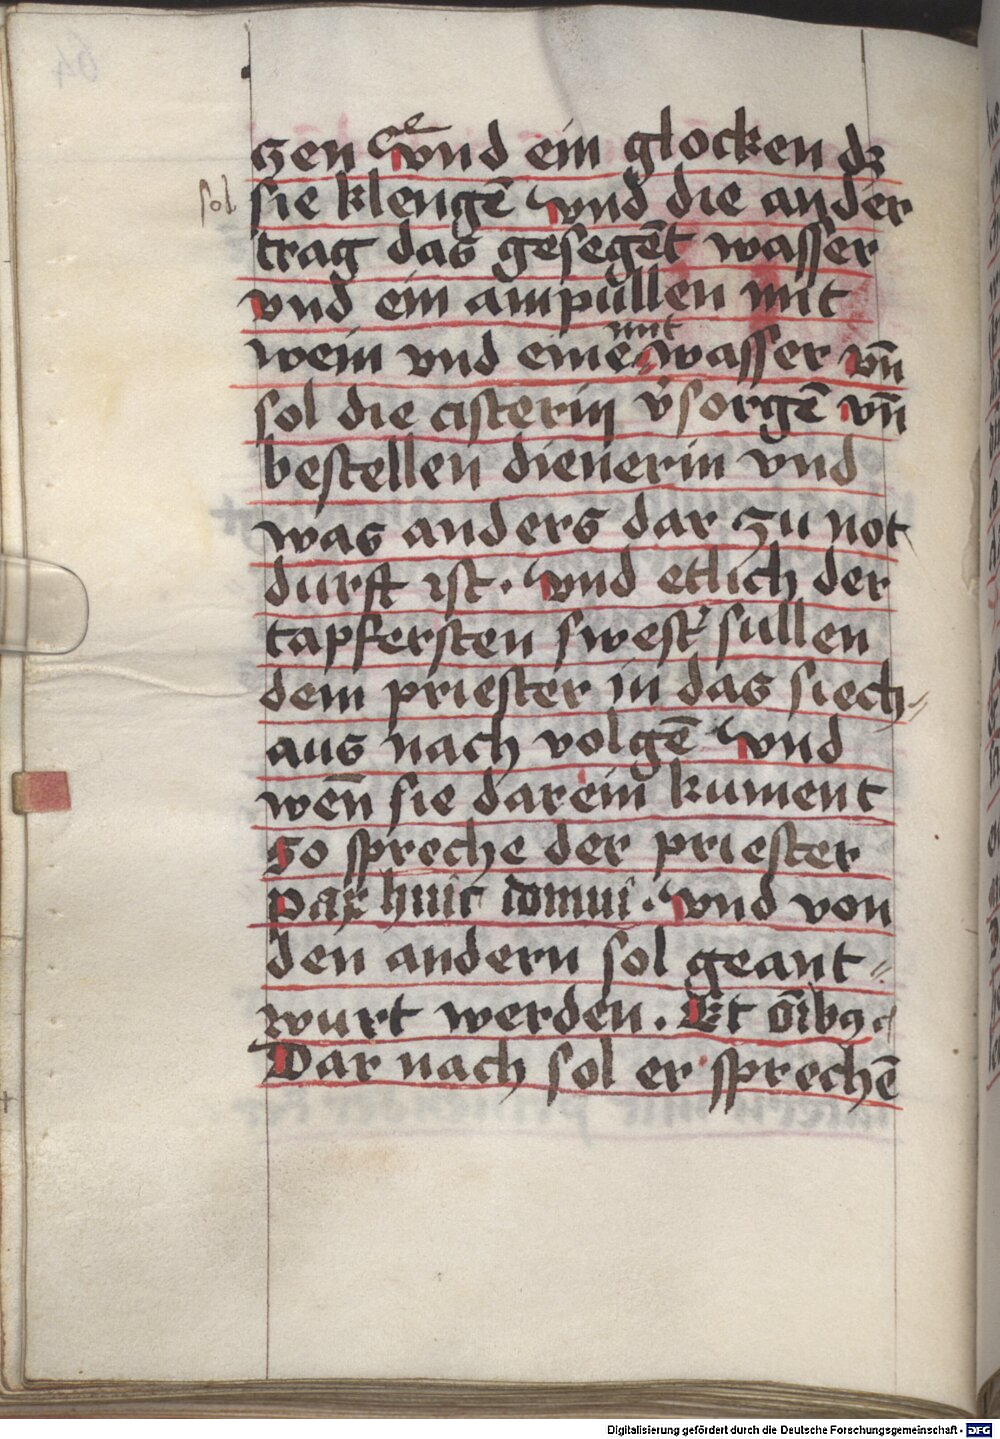 zen vnd ein glocken dz
sol sie klengē vnd die ander
trag das gesegēt wasser
vnd ein ampüllen mit
wein vnd eine mit wasser vn̄
sol die cisterin v̓sorgē vn̄
bestellen dienerin vnd
was anders dar zu not
durft ist. vnd etlich der
tapfersten swest̓ süllen
dem priester in das siech
aus nach volgē vnd
wen̄ sie darein kument
so spreche der priester
Pax huic domui. vnd von
den andern sol geant
wurt werden. Et oi̅bꝫ
Dar nach sol er sprechē
Digitalisierung gefördert durch die Deutsche Forschungsgemeinschaft - DFG